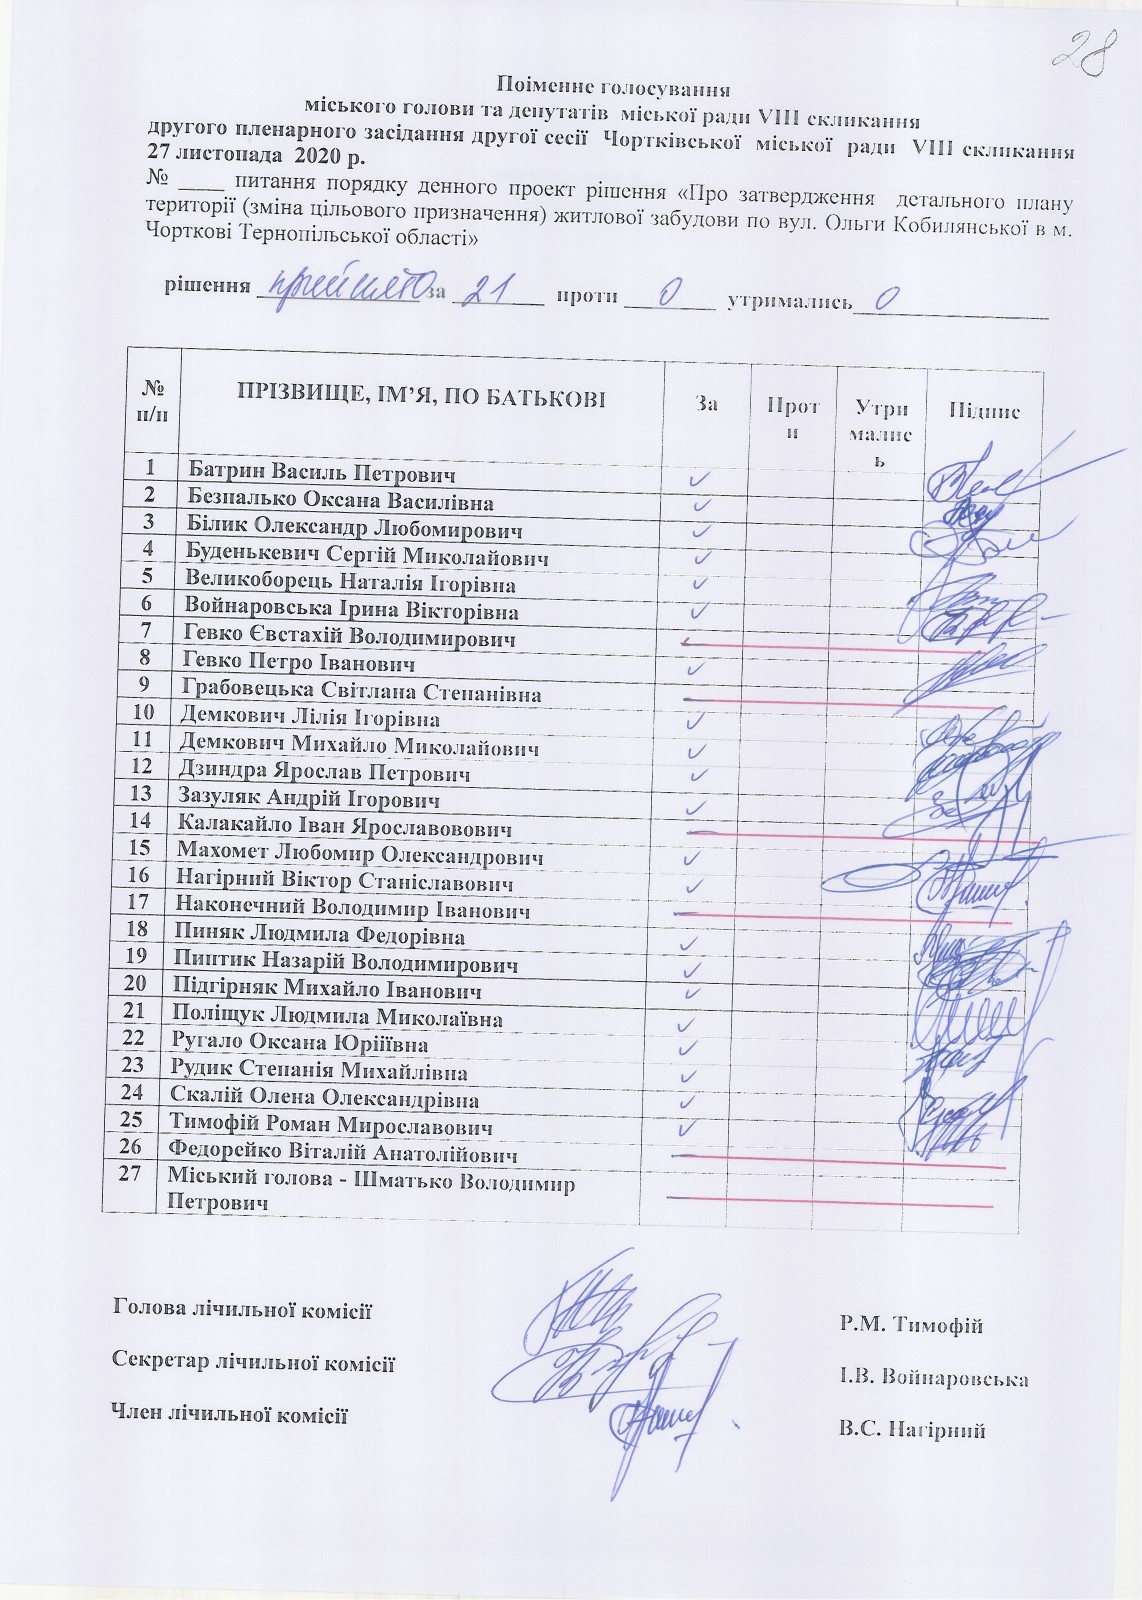 28
Поіменне голосування
міського голови та депутатів міської ради VIII скликання
другого пленарного засідання другої сесії Чортківської міської ради VIII скликання
27 листопада 2020 р.
№ ____ питання порядку денного проект рішення «Про затвердження детального плану
території (зміна цільового призначення) житлової забудови по вул. Ольги Кобилянської в м.
Чорткові Тернопільської області»
рішення прийнято за 21 проти 0 утримались 0
№ п/п ПРІЗВИЩЕ, ІМ’Я, ПО БАТЬКОВІ За Проти Утрималис ь Підпис
1 Батрин Василь Петрович ✓
2 Безпалько Оксана Василівна ✓
3 Білик Олександр Любомирович ✓
4 Буденькевич Сергій Миколайович ✓
5 Великоборець Наталія Ігорівна ✓
6 Войнаровська Ірина Вікторівна ✓
7 Гевко Євстахій Володимирович
8 Гевко Петро Іванович ✓
9 Грабовецька Світлана Степанівна
10 Демкович Лілія Ігорівна ✓
11 Демкович Михайло Миколайович ✓
12 Дзиндра Ярослав Петрович ✓
13 Зазуляк Андрій Ігорович ✓
14 Калакайло Іван Ярославовович
15 Махомет Любомир Олександрович ✓
16 Нагірний Віктор Станіславович ✓
17 Наконечний Володимир Іванович
18 Пиняк Людмила Федорівна ✓
19 Пиптик Назарій Володимирович ✓
20 Підгірняк Михайло Іванович ✓
21 Поліщук Людмила Миколаївна ✓
22 Ругало Оксана Юріїївна ✓
23 Рудик Степанія Михайлівна ✓
24 Скалій Олена Олександрівна ✓
25 Тимофій Роман Мирославович ✓
26 Федорейко Віталій Анатолійович
27 Міський голова - Шматько Володимир
Петрович
Голова лічильної комісії Р.М. Тимофій
Секретар лічильної комісії І.В. Войнаровська
Член лічильної комісії В.С. Нагірний